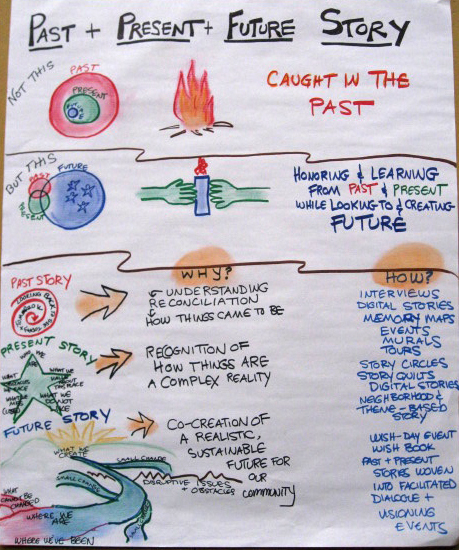 PAST + PRESENT + FUTURE STORY
NOT THIS
PAST
PRESENT
CAUGHT IN THE
PAST
BUT THIS
PAST
PRESENT
FUTURE
HONORING & LEARNING
FROM PAST & PRESENT
WHILE LOOKING TO & CREATING
FUTURE
WHY?
HOW?
PAST STORY
LOOKING BACK
UNDERSTANDING
RECONCILIATION
HOW THINGS CAME TO BE
INTERVIEWS
DIGITAL STORIES
MEMORY MAPS
EVENTS
MURALS
TOURS
PRESENT STORY
WHAT WE
EMBRACE
WHAT WE
NOT
RECOGNITION OF
HOW THINGS ARE
A COMPLEX REALITY
STORY CIRCLES
STORY QUILTS
DIGITAL STORIES
NEGHBORHOOD &
THEME-BASED
STORY
FUTURE STORY
WHAT WE
CREATE
SMALL CHANGE
SMALL CHANGE
WHAT
CAN'T BE
CHANGED
WHERE WE
ARE
WHERE WE'VE BEEN
DISRUPTIVE ISSUES
+ OBSTACLES
CO-CREATION OF
A REALISTIC,
SUSTAINABLE
FUTURE FOR
OUR
COMMUNITY
WISH-DAY EVENT
WISH BOOK
PAST + PRESENT
STORIES WOVEN
INTO FACILITATED
DIALOGUE +
VISIONING
EVENTS